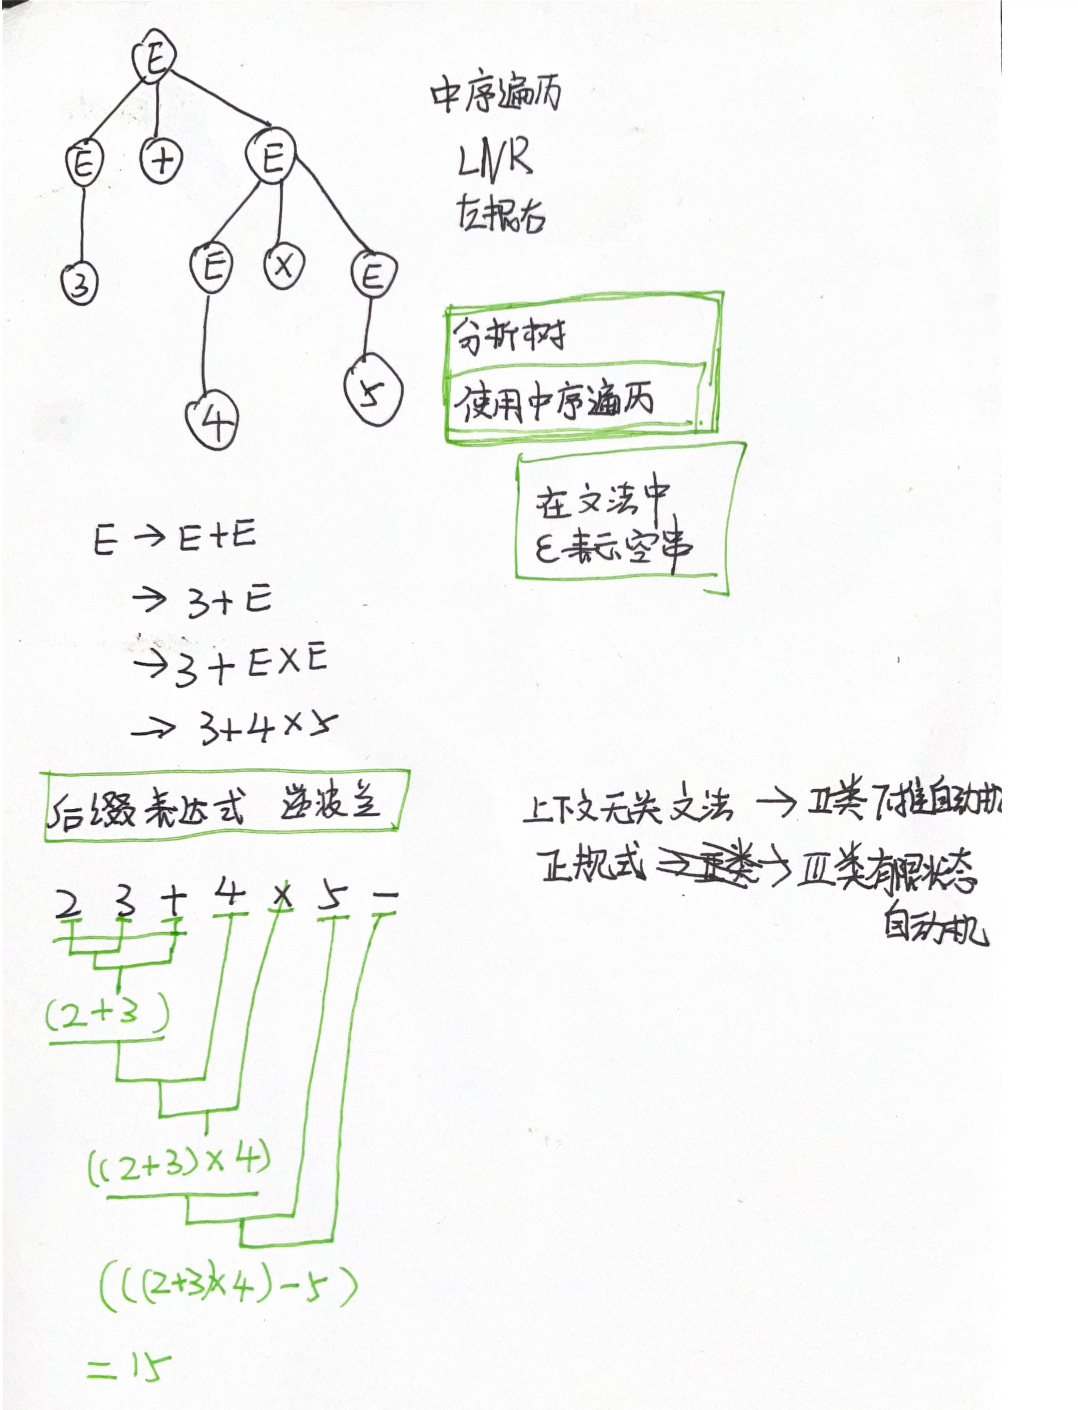 E
E + E
3 E × E
4 5
中序遍历
LNR
左根右
分析树
使用中序遍历
在文法中
ε表示空串
E → E+E
→ 3+E
→ 3+E×E
→ 3+4×5
后缀表达式 逆波兰
2 3 + 4 × 5 -
(2+3)
((2+3)×4)
(((2+3)×4)-5)
=15
上下文无关文法 → II类 下推自动机
正规式 → III类 有限状态
自动机